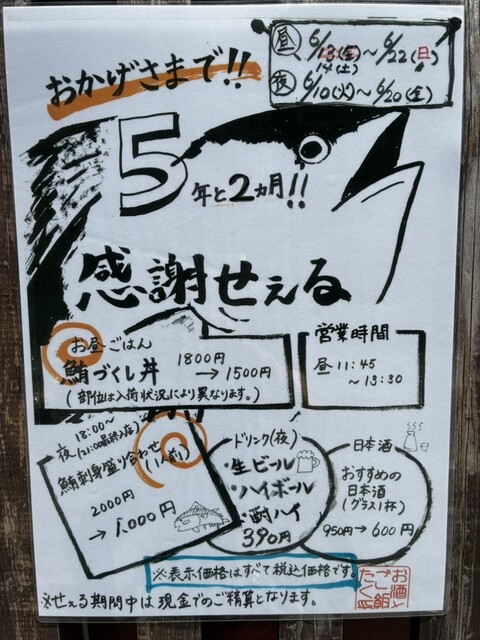 おかげさまで!!
昼 6/13(金)~6/22(日)
14(土)
夜 6/10(火)~6/20(金)
5年と2ヵ月!!
感謝せぇる
お昼ごはん
鮪づくし丼 1800円→1500円
(部位は入荷状況により異なります。)
営業時間
昼 11:45
~13:30
夜 18:00~
(21:00最終入店)
鮪刺身盛り合わせ
(1人前)
2000円
→1,000円
ドリンク(夜)
・生ビール
・ハイボール
・酎ハイ
390円
日本酒
おすすめの
日本酒
(グラス1杯)
950円→600円
※表示価格はすべて税込価格です。
※せぇる期間中は現金でのご精算となります。
お酒と
ご飯